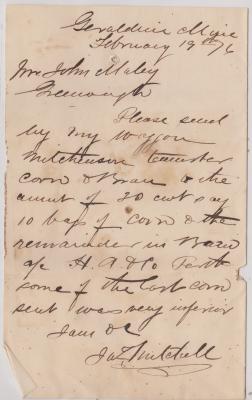 Geraldine Mine
February 19th 76
Mr John Maley
Greenough
Please send
by my waggon
Mitchinson teamster
corn & Bran to the
amount of 30 cwt say
10 bags of corn & the
remainder in Bran
a/c H. A & Co Perth
some of the last corn
sent was very inferior
Yours &c
Mitchell